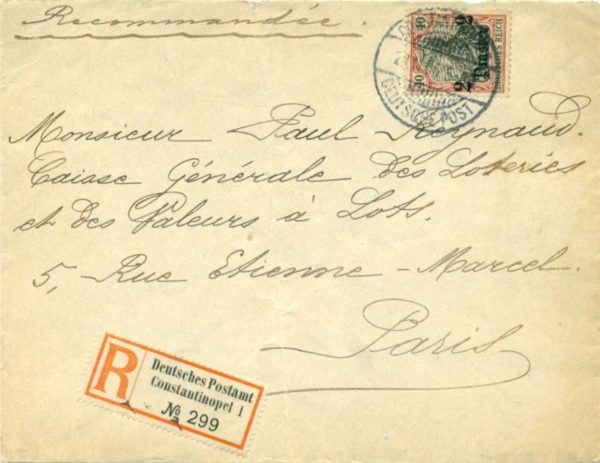 Recommandée.
40 40
REICH
2 Piaster 2
DEUTSCHE POST
Monsieur Paul Reynaud.
Caisse Générale des Loteries
et des Valeurs à Lots.
5, Rue Etienne-Marcel.
Paris
R
Deutsches Postamt
Constantinopel 1
No 299